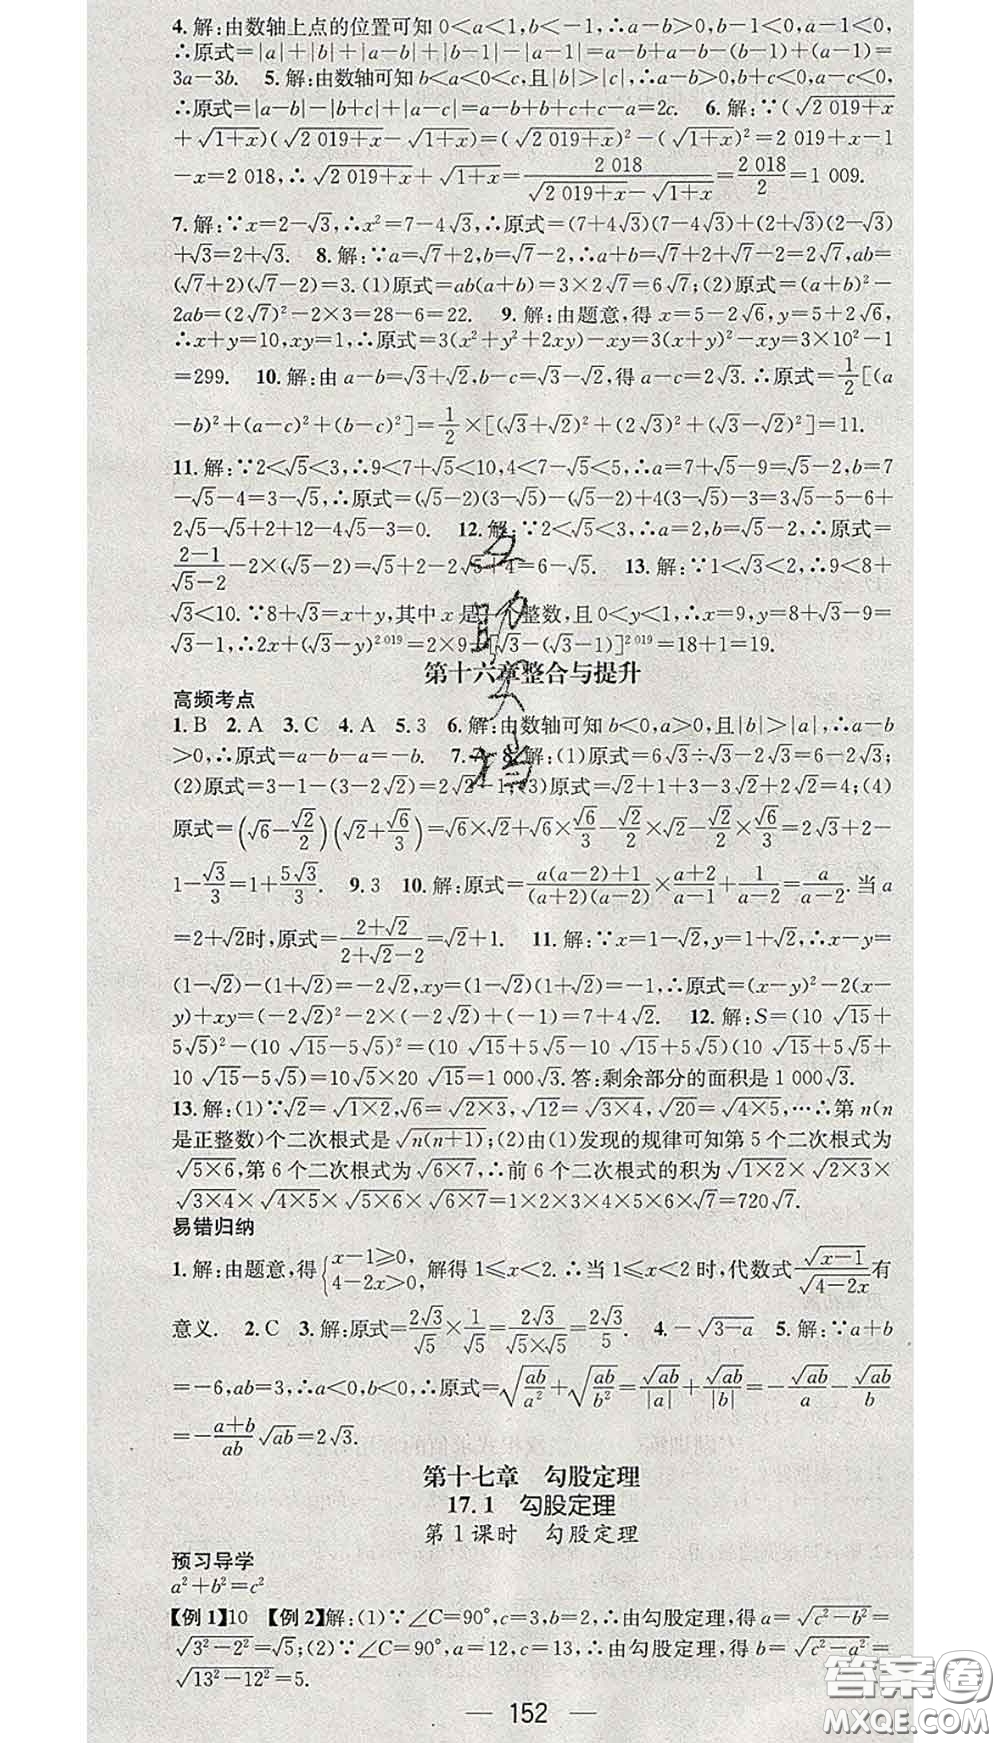 4.解:由数轴上点的位置可知0<a<1,b<-1,∴a-b>0,b-1<0,a-1<0,
∴原式=|a|+|b|+|a-b|+|b-1|-|a-1|=a-b+a-b-(b-1)+(a-1)=
3a-3b. 5.解:由数轴可知b<a<0<c,且|b|>|c|,∴a-b>0,b+c<0,a-c<0,
∴原式=|a-b|-|b+c|+|a-c|=a-b+b+c+c-a=2c. 6.解:∵(√2 019+x
+√1+x)(√2 019+x-√1+x)=(√2 019+x)²-(√1+x)²=2 019+x-1
-x=2 018,∴√2 019+x+√1+x=2 018/(√2 019+x-√1+x)=2 018/2=1 009.
7.解:∵x=2-√3,∴x²=7-4√3,∴原式=(7+4√3)(7-4√3)+(2+√3)(2-√3)
+√3=2+√3. 8.解:∵a=√7+2,b=√7-2,∴a+b=√7+2+√7-2=2√7,ab=
(√7+2)(√7-2)=3.(1)原式=ab(a+b)=3×2√7=6√7;(2)原式=(a+b)²-
2ab=(2√7)²-2×3=28-6=22. 9.解:由题意,得x=5-2√6,y=5+2√6,
∴x+y=10,xy=1,∴原式=3(x²+y²+2xy)-xy=3(x+y)²-xy=3×10²-1
=299. 10.解:由a-b=√3+√2,b-c=√3-√2,得a-c=2√3.∴原式=1/2[(a
-b)²+(a-c)²+(b-c)²]=1/2×[(√3+√2)²+(2√3)²+(√3-√2)²]=11.
11.解:∵2<√5<3,∴9<7+√5<10,4<7-√5<5,∴a=7+√5-9=√5-2,b=7
-√5-4=3-√5,∴原式=(√5-2)(3-√5)-(√5-2)+4(3-√5)-3=3√5-5-6+
2√5-√5+2+12-4√5-3=0. 12.解:∵2<√5<3,∴a=2,b=√5-2,∴原式=
(2-1)/(√5-2)-2×(√5-2)=√5+2-2√5+4=6-√5. 13.解:∵1<√3<2,∴9<8+
√3<10.∵8+√3=x+y,其中x是一个整数,且0<y<1,∴x=9,y=8+√3-9=
√3-1,∴2x+(√3-y)²⁰¹⁹=2×9+[√3-(√3-1)]²⁰¹⁹=18+1=19.
第十六章整合与提升
高频考点
1.B 2.A 3.C 4.A 5.3 6.解:由数轴可知b<0,a>0,且|b|>|a|,∴a-b
>0,∴原式=a-b-a=-b. 7. 8.解:(1)原式=6√3÷√3-2√3=6-2√3;
(2)原式=3-1-(3-2√2)=2√2-1;(3)原式=√2+1+3-3√2+2√2=4;(4)
原式=(√6-√2/2)(√2+√6/3)=√6×√2+√6×√6/3-√2/2×√2-√2/2×√6/3=2√3+2-
1-√3/3=1+5√3/3. 9.3 10.解:原式=(a(a-2)+1)/((a+2)(a-2))×(a+2)/(a-1)+1/(a-2)=a/(a-2).当a
=2+√2时,原式=(2+√2)/(2+√2-2)=√2+1. 11.解:∵x=1-√2,y=1+√2,∴x-y=
(1-√2)-(1+√2)=-2√2,xy=(1-√2)(1+√2)=-1,∴原式=(x-y)²-2(x-
y)+xy=(-2√2)²-2×(-2√2)+(-1)=7+4√2. 12.解:S=(10 √15+
5√5)²-(10 √15-5√5)²=(10 √15+5√5-10 √15+5√5)(10 √15+5√5+
10 √15-5√5)=10√5×20 √15=1 000√3.答:剩余部分的面积是1 000√3.
13.解:(1)∵√2=√1×2,√6=√2×3,√12=√3×4,√20=√4×5,…∴第n(n
是正整数)个二次根式是√n(n+1);(2)由(1)发现的规律可知第5个二次根式为
√5×6,第6个二次根式为√6×7,∴前6个二次根式的积为√1×2×√2×3×
√3×4×√4×5×√5×6×√6×7=1×2×3×4×5×6×√7=720√7.
易错归纳
1.解:由题意,得{x-1≥0, 4-2x>0, 解得1≤x<2.∴当1≤x<2时,代数式√x-1/√4-2x有
意义. 2.C 3.解:原式=2√3/√5×1/√5=2√3/(√5×√5)=2√3/5. 4.-√3-a 5.解:∵a+b
=-6,ab=3,∴a<0,b<0,∴原式=√(ab/a²)+√(ab/b²)=√ab/|a|+√ab/|b|=-√ab/a-√ab/b
=-(a+b)/ab √ab=2√3.
第十七章 勾股定理
17.1 勾股定理
第1课时 勾股定理
预习导学
a²+b²=c²
【例1】10 【例2】解:(1)∵∠C=90°,c=3,b=2,∴由勾股定理,得a=√c²-b²=
√3²-2²=√5;(2)∵∠C=90°,a=12,c=13,∴由勾股定理,得b=√c²-a²=
√13²-12²=5.
— 152 —
答案卷
MXQE.COM